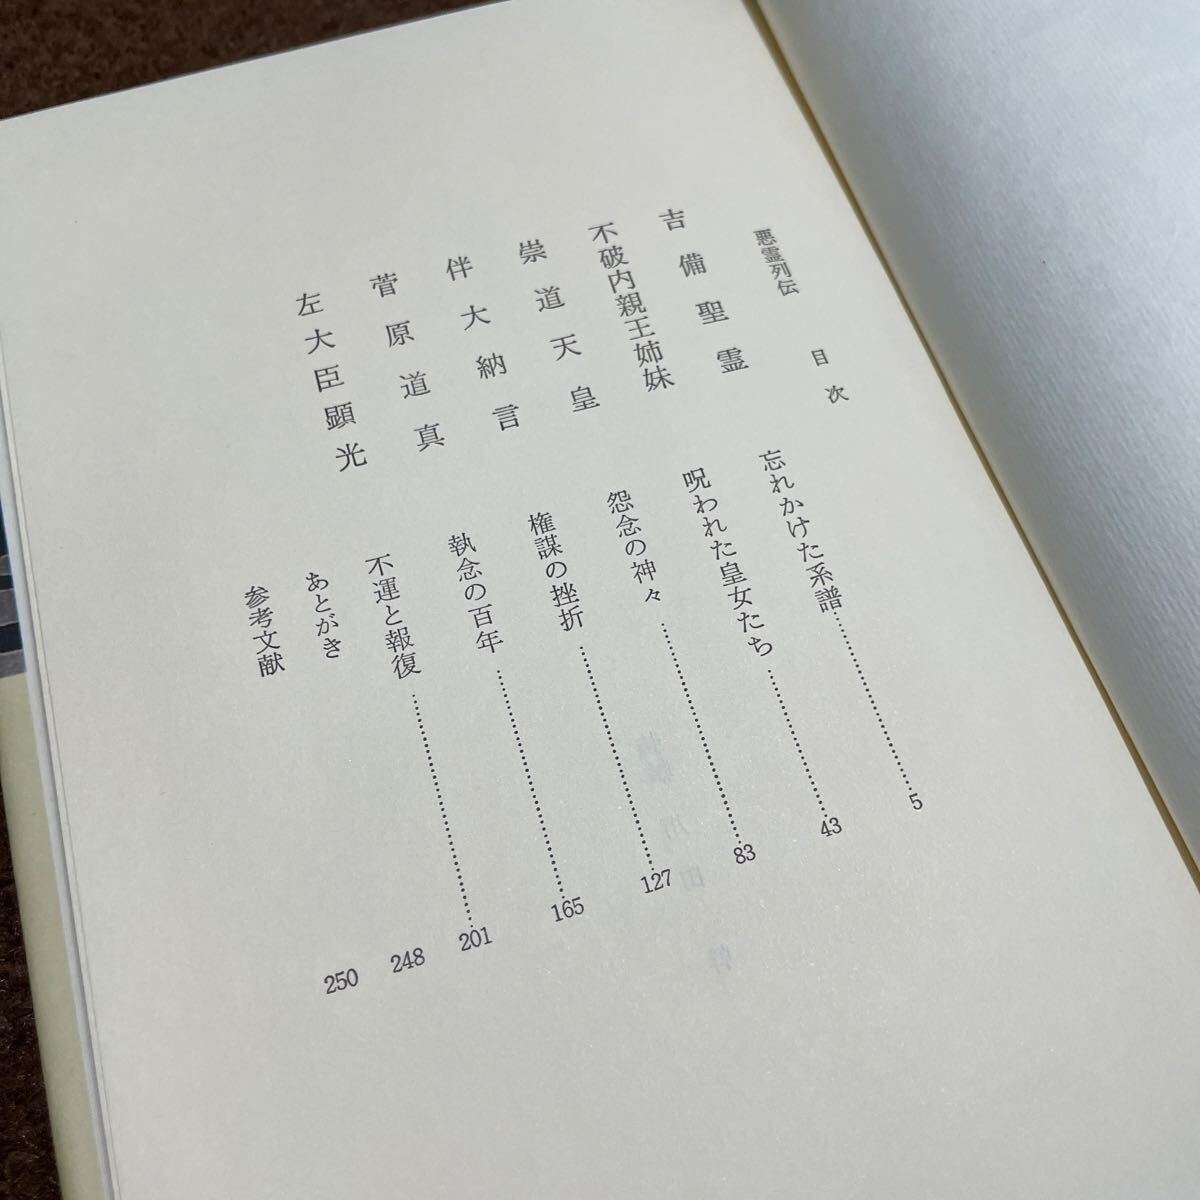 悪霊列伝　目次
吉備聖霊　忘れかけた系譜……5
不破内親王姉妹　呪われた皇女たち……43
崇道天皇　怨念の神々……83
伴大納言　権謀の挫折……127
菅原道真　執念の百年……165
左大臣顕光　不運と報復……201
あとがき　248
参考文献　250